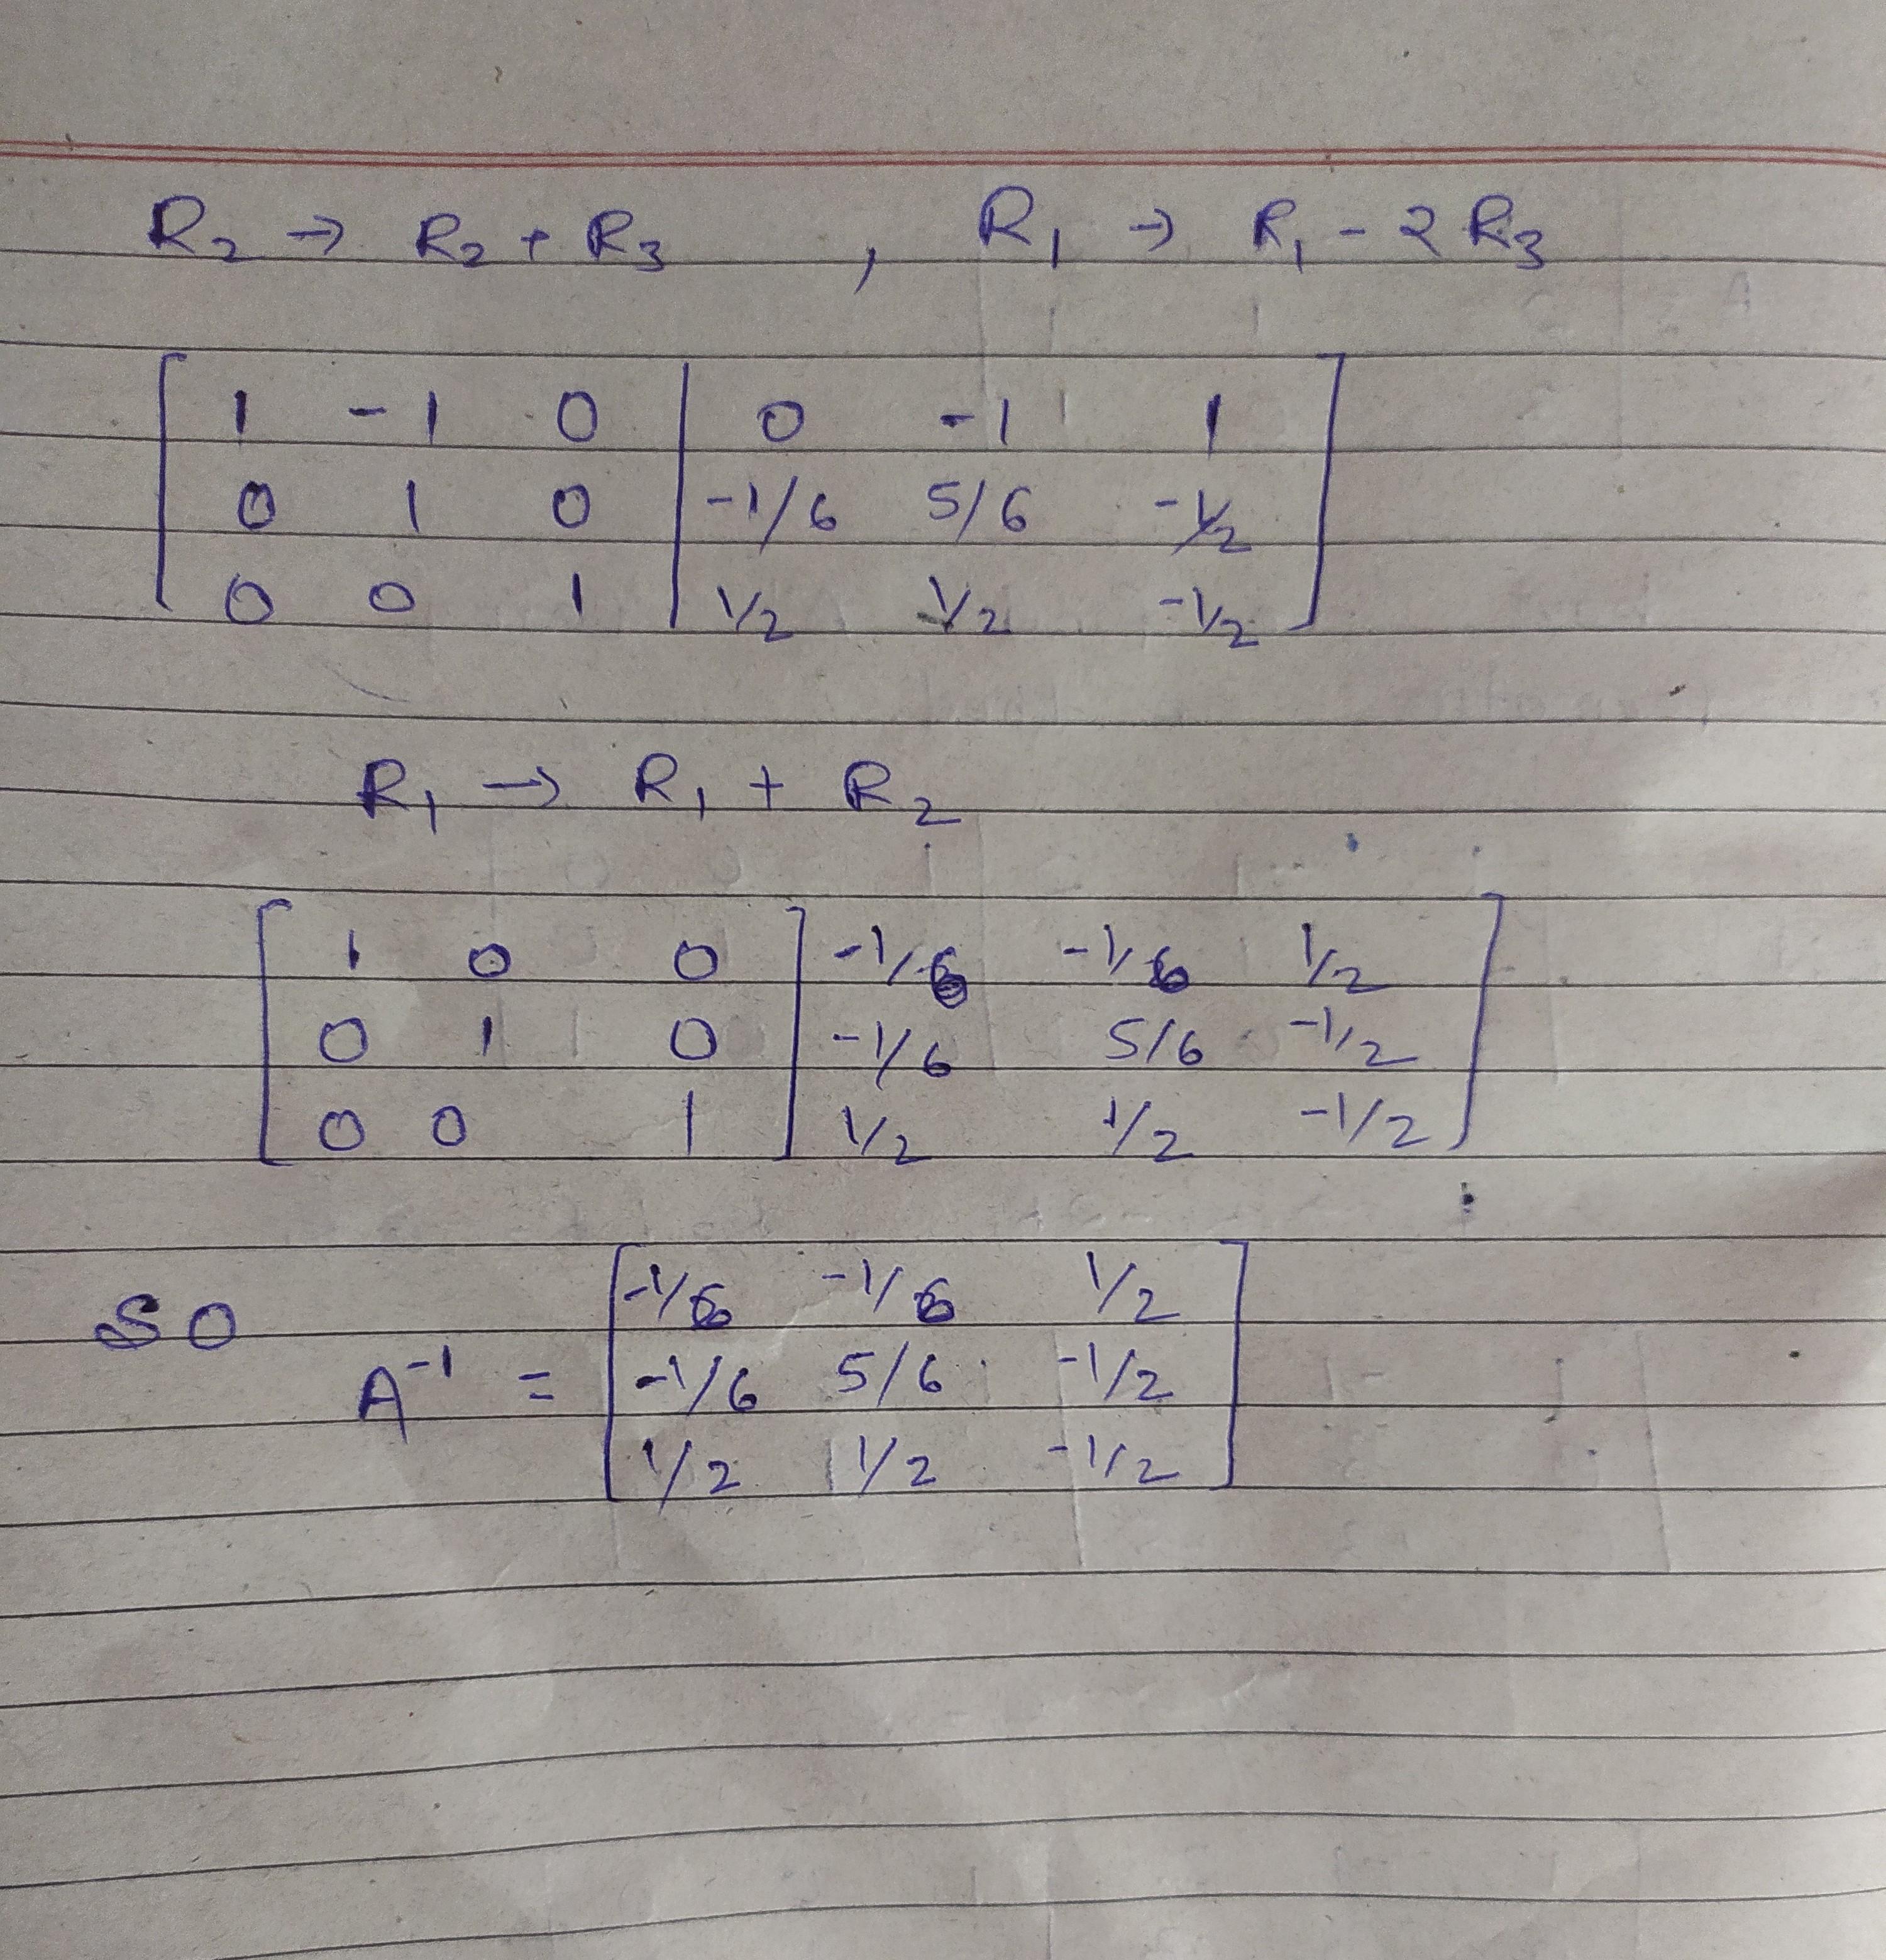 R₂ → R₂ + R₃ , R₁ → R₁ - 2R₃
1 -1 0 | 0 -1 1
0 1 0 | -1/6 5/6 -1/2
0 0 1 | 1/2 1/2 -1/2
R₁ → R₁ + R₂
1 0 0 -1/6 -1/6 1/2
0 1 0 -1/6 5/6 -1/2
0 0 1 1/2 1/2 -1/2
-1/6 -1/6 1/2
SO A⁻¹ = -1/6 5/6 -1/2
1/2 1/2 -1/2